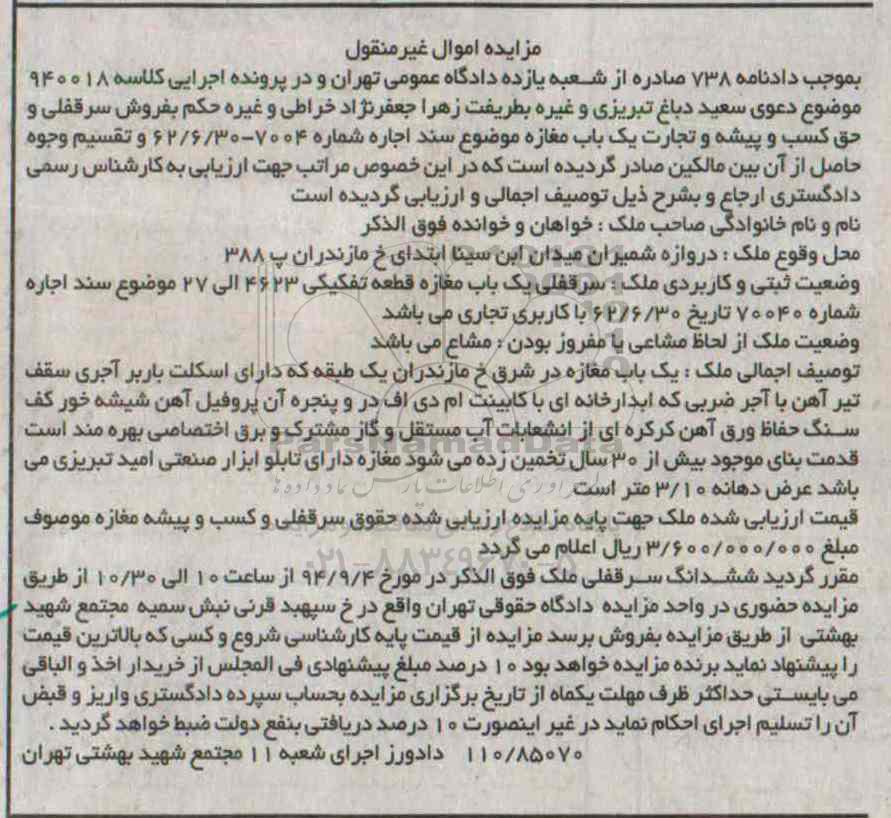 مزایده اموال غیرمنقول
بموجب دادنامه ۷۳۸ صادره از شعبه یازده دادگاه عمومی تهران و در پرونده اجرایی کلاسه ۹۴۰۰۱۸
موضوع دعوی سعید دباغ تبریزی و غیره بطریفت زهرا جعفرنژاد خراطی و غیره حکم بفروش سرقفلی و
حق کسب و پیشه و تجارت یک باب مغازه موضوع سند اجاره شماره ۷۰۰۴-۶۲/۶/۳۰ و تقسیم وجوه
حاصل از آن بین مالکین صادر گردیده است که در این خصوص مراتب جهت ارزیابی به کارشناس رسمی
دادگستری ارجاع و بشرح ذیل توصیف اجمالی و ارزیابی گردیده است
نام و نام خانوادگی صاحب ملک : خواهان و خوانده فوق الذکر
محل وقوع ملک : دروازه شمیران میدان ابن سینا ابتدای خ مازندران پ ۳۸۸
وضعیت ثبتی و کاربردی ملک : سرقفلی یک باب مغازه قطعه تفکیکی ۴۶۲۳ الی ۲۷ موضوع سند اجاره
شماره ۷۰۰۴۰ تاریخ ۶۲/۶/۳۰ با کاربری تجاری می باشد
وضعیت ملک از لحاظ مشاعی یا مفروز بودن : مشاع می باشد
توصیف اجمالی ملک : یک باب مغازه در شرق خ مازندران یک طبقه که دارای اسکلت باربر آجری سقف
تیر آهن با آجر ضربی که ابدارخانه ای با کابینت ام دی اف در و پنجره آن پروفیل آهن شیشه خور کف
سنگ حفاظ ورق آهن کرکره ای از انشعابات آب مستقل و گاز مشترک و برق اختصاصی بهره مند است
قدمت بنای موجود بیش از ۳۰ سال تخمین زده می شود مغازه دارای تابلو ابزار صنعتی امید تبریزی می
باشد عرض دهانه ۳/۱۰ متر است
قیمت ارزیابی شده ملک جهت پایه مزایده ارزیابی شده حقوق سرقفلی و کسب و پیشه مغازه موصوف
مبلغ ۳/۶۰۰/۰۰۰/۰۰۰ ریال اعلام می گردد
مقرر گردید ششدانگ سرقفلی ملک فوق الذکر در مورخ ۹۴/۹/۴ از ساعت ۱۰ الی ۱۰/۳۰ از طریق
مزایده حضوری در واحد مزایده دادگاه حقوقی تهران واقع در خ سپهبد قرنی نبش سمیه مجتمع شهید
بهشتی از طریق مزایده بفروش برسد مزایده از قیمت پایه کارشناسی شروع و کسی که بالاترین قیمت
را پیشنهاد نماید برنده مزایده خواهد بود ۱۰ درصد مبلغ پیشنهادی فی المجلس از خریدار اخذ و الباقی
می بایستی حداکثر ظرف مهلت یکماه از تاریخ برگزاری مزایده بحساب سپرده دادگستری واریز و قبض
آن را تسلیم اجرای احکام نماید در غیر اینصورت ۱۰ درصد دریافتی بنفع دولت ضبط خواهد گردید .
۱۱۰/۸۵۰۷۰ دادورز اجرای شعبه ۱۱ مجتمع شهید بهشتی تهران
ParsNamadData
۰۲۱-۸۸۳۴۹۶۷۰-۵